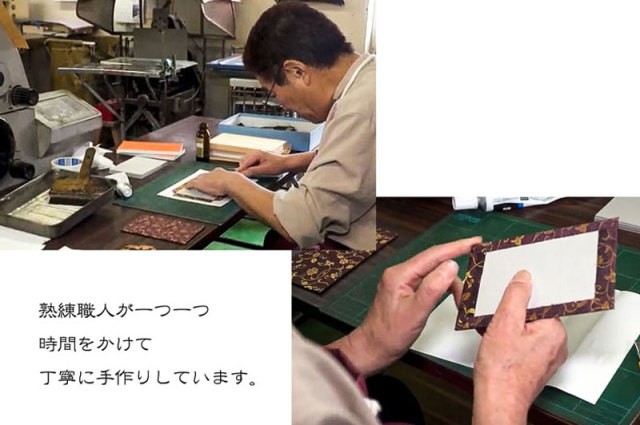 熟練職人が一つ一つ
時間をかけて
丁寧に手作りしています。